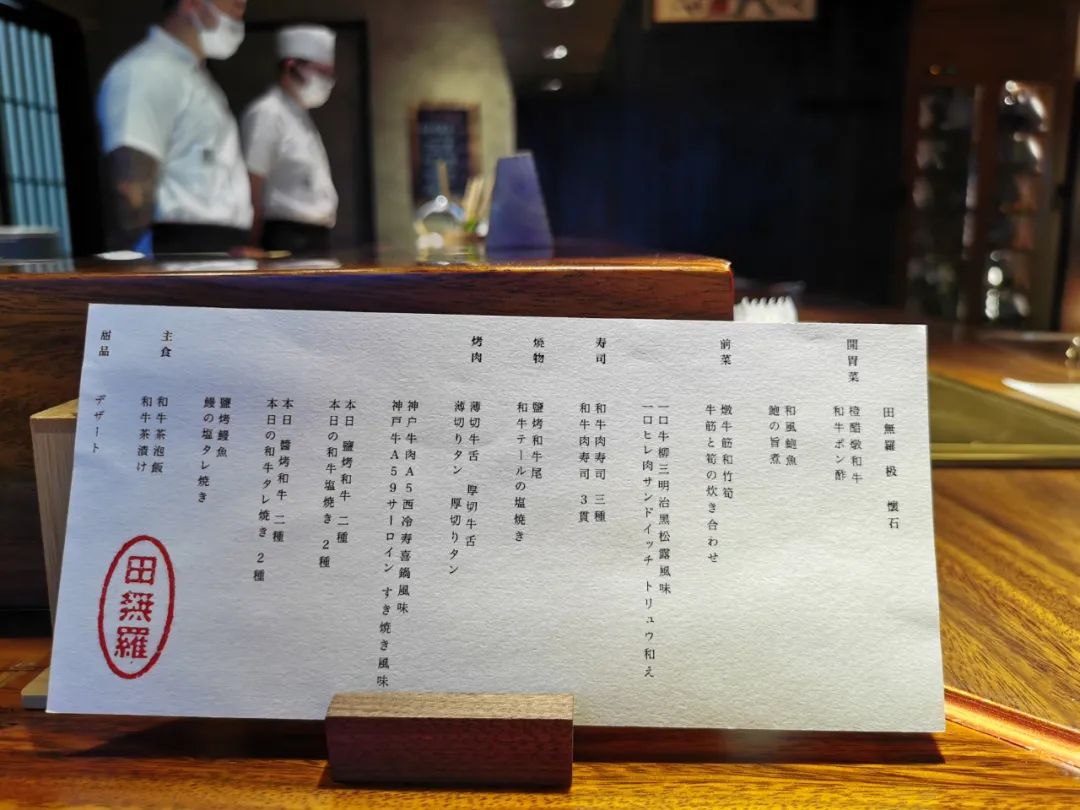 田無羅 极 懷石
開胃菜
橙醋燉和牛
和牛ポン酢
和風鮑魚
鮑の旨煮
前菜
燉牛筋和竹筍
牛筋と筍の炊き合わせ
一口牛柳三明治黑松露風味
一口ヒレ肉サンドイッチ トリュウ和え
寿司
和牛肉寿司 三種
和牛肉寿司 3貫
燒物
鹽烤和牛尾
和牛テールの塩焼き
烤肉
薄切牛舌 厚切牛舌
薄切りタン 厚切りタン
神户牛肉A5西冷寿喜鍋風味
神戸牛A59サーロイン すき焼き風味
本日 鹽烤和牛 二種
本日の和牛塩焼き 2種
本日 醬烤和牛 二種
本日の和牛タレ焼き 2種
鹽烤鰻魚
鰻の塩タレ焼き
主食
和牛茶泡飯
和牛茶漬け
甜品
デザート
田無羅